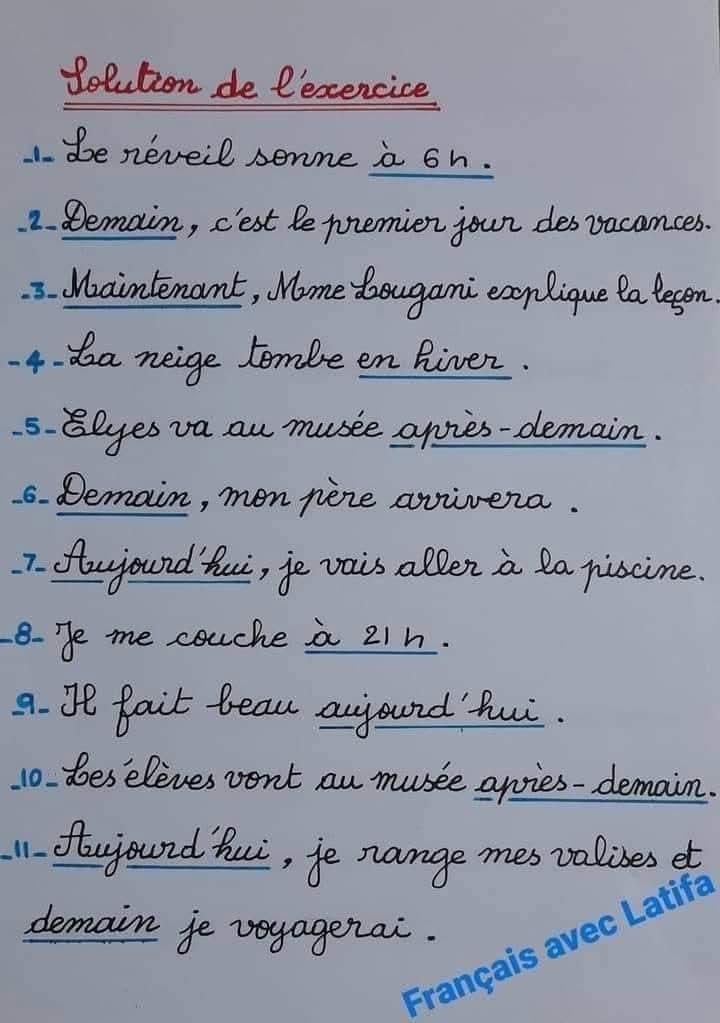 Solution de l'exercice
-1- Le réveil sonne à 6 h.
-2- Demain, c'est le premier jour des vacances.
-3- Maintenant, Mme Lougani explique la leçon.
-4- La neige tombe en hiver.
-5- Elyes va au musée après-demain.
-6- Demain, mon père arrivera.
-7- Aujourd'hui, je vais aller à la piscine.
-8- Je me couche à 21 h.
-9- Il fait beau aujourd'hui.
-10- Les élèves vont au musée après-demain.
-11- Aujourd'hui, je range mes valises et
demain je voyagerai.
Français avec Latifa